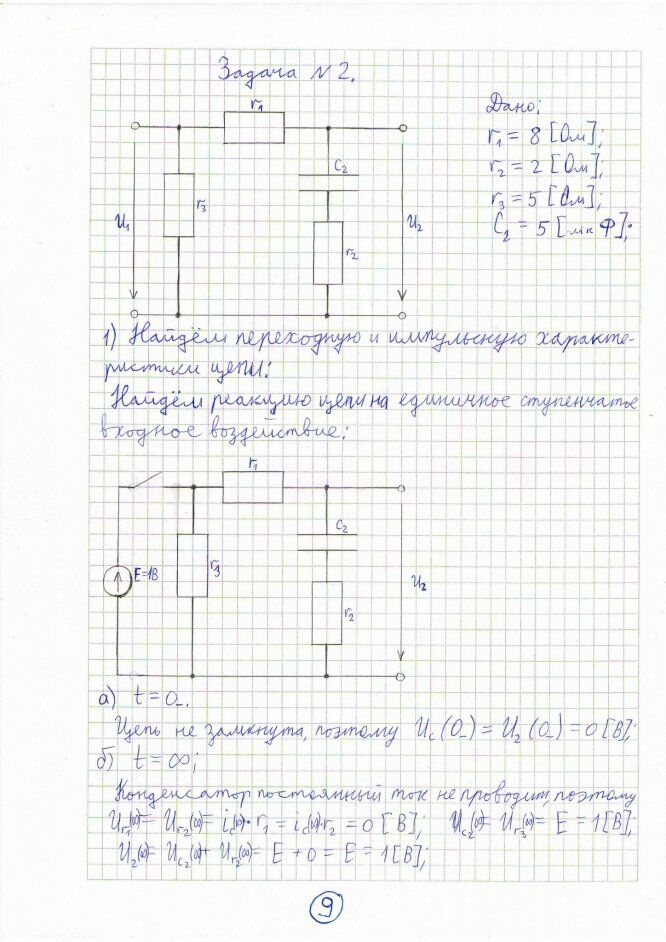 Задача №2.
r₁
Дано:
r₁ = 8 [Ом];
r₂ = 2 [Ом];
r₃ = 5 [Ом];
C₂ = 5 [мкФ];
C₂
r₃
U₁
U₂
r₂
1) Найдём переходную и импульсную характе-
ристики цепи:
Найдём реакцию цепи на единичное ступенчатое
входное воздействие:
r₁
C₂
r₃
E=1В
U₂
r₂
а) t = 0₋.
Цепь не замкнута, поэтому U_c(0₋) = U₂(0₋) = 0 [В];
б) t = ∞;
Конденсатор постоянный ток не проводит, поэтому
U_r₁(∞) = U_r₂(∞) = i_c(∞)·r₁ = i_c(∞)·r₂ = 0 [В]; U_c₂(∞) = U_r₃(∞) = E = 1 [В];
U₂(∞) = U_c₂(∞) + U_r₂(∞) = E + 0 = E = 1 [В];
9